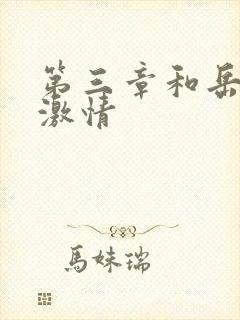 第三章和岳
激情
馬妹瑞